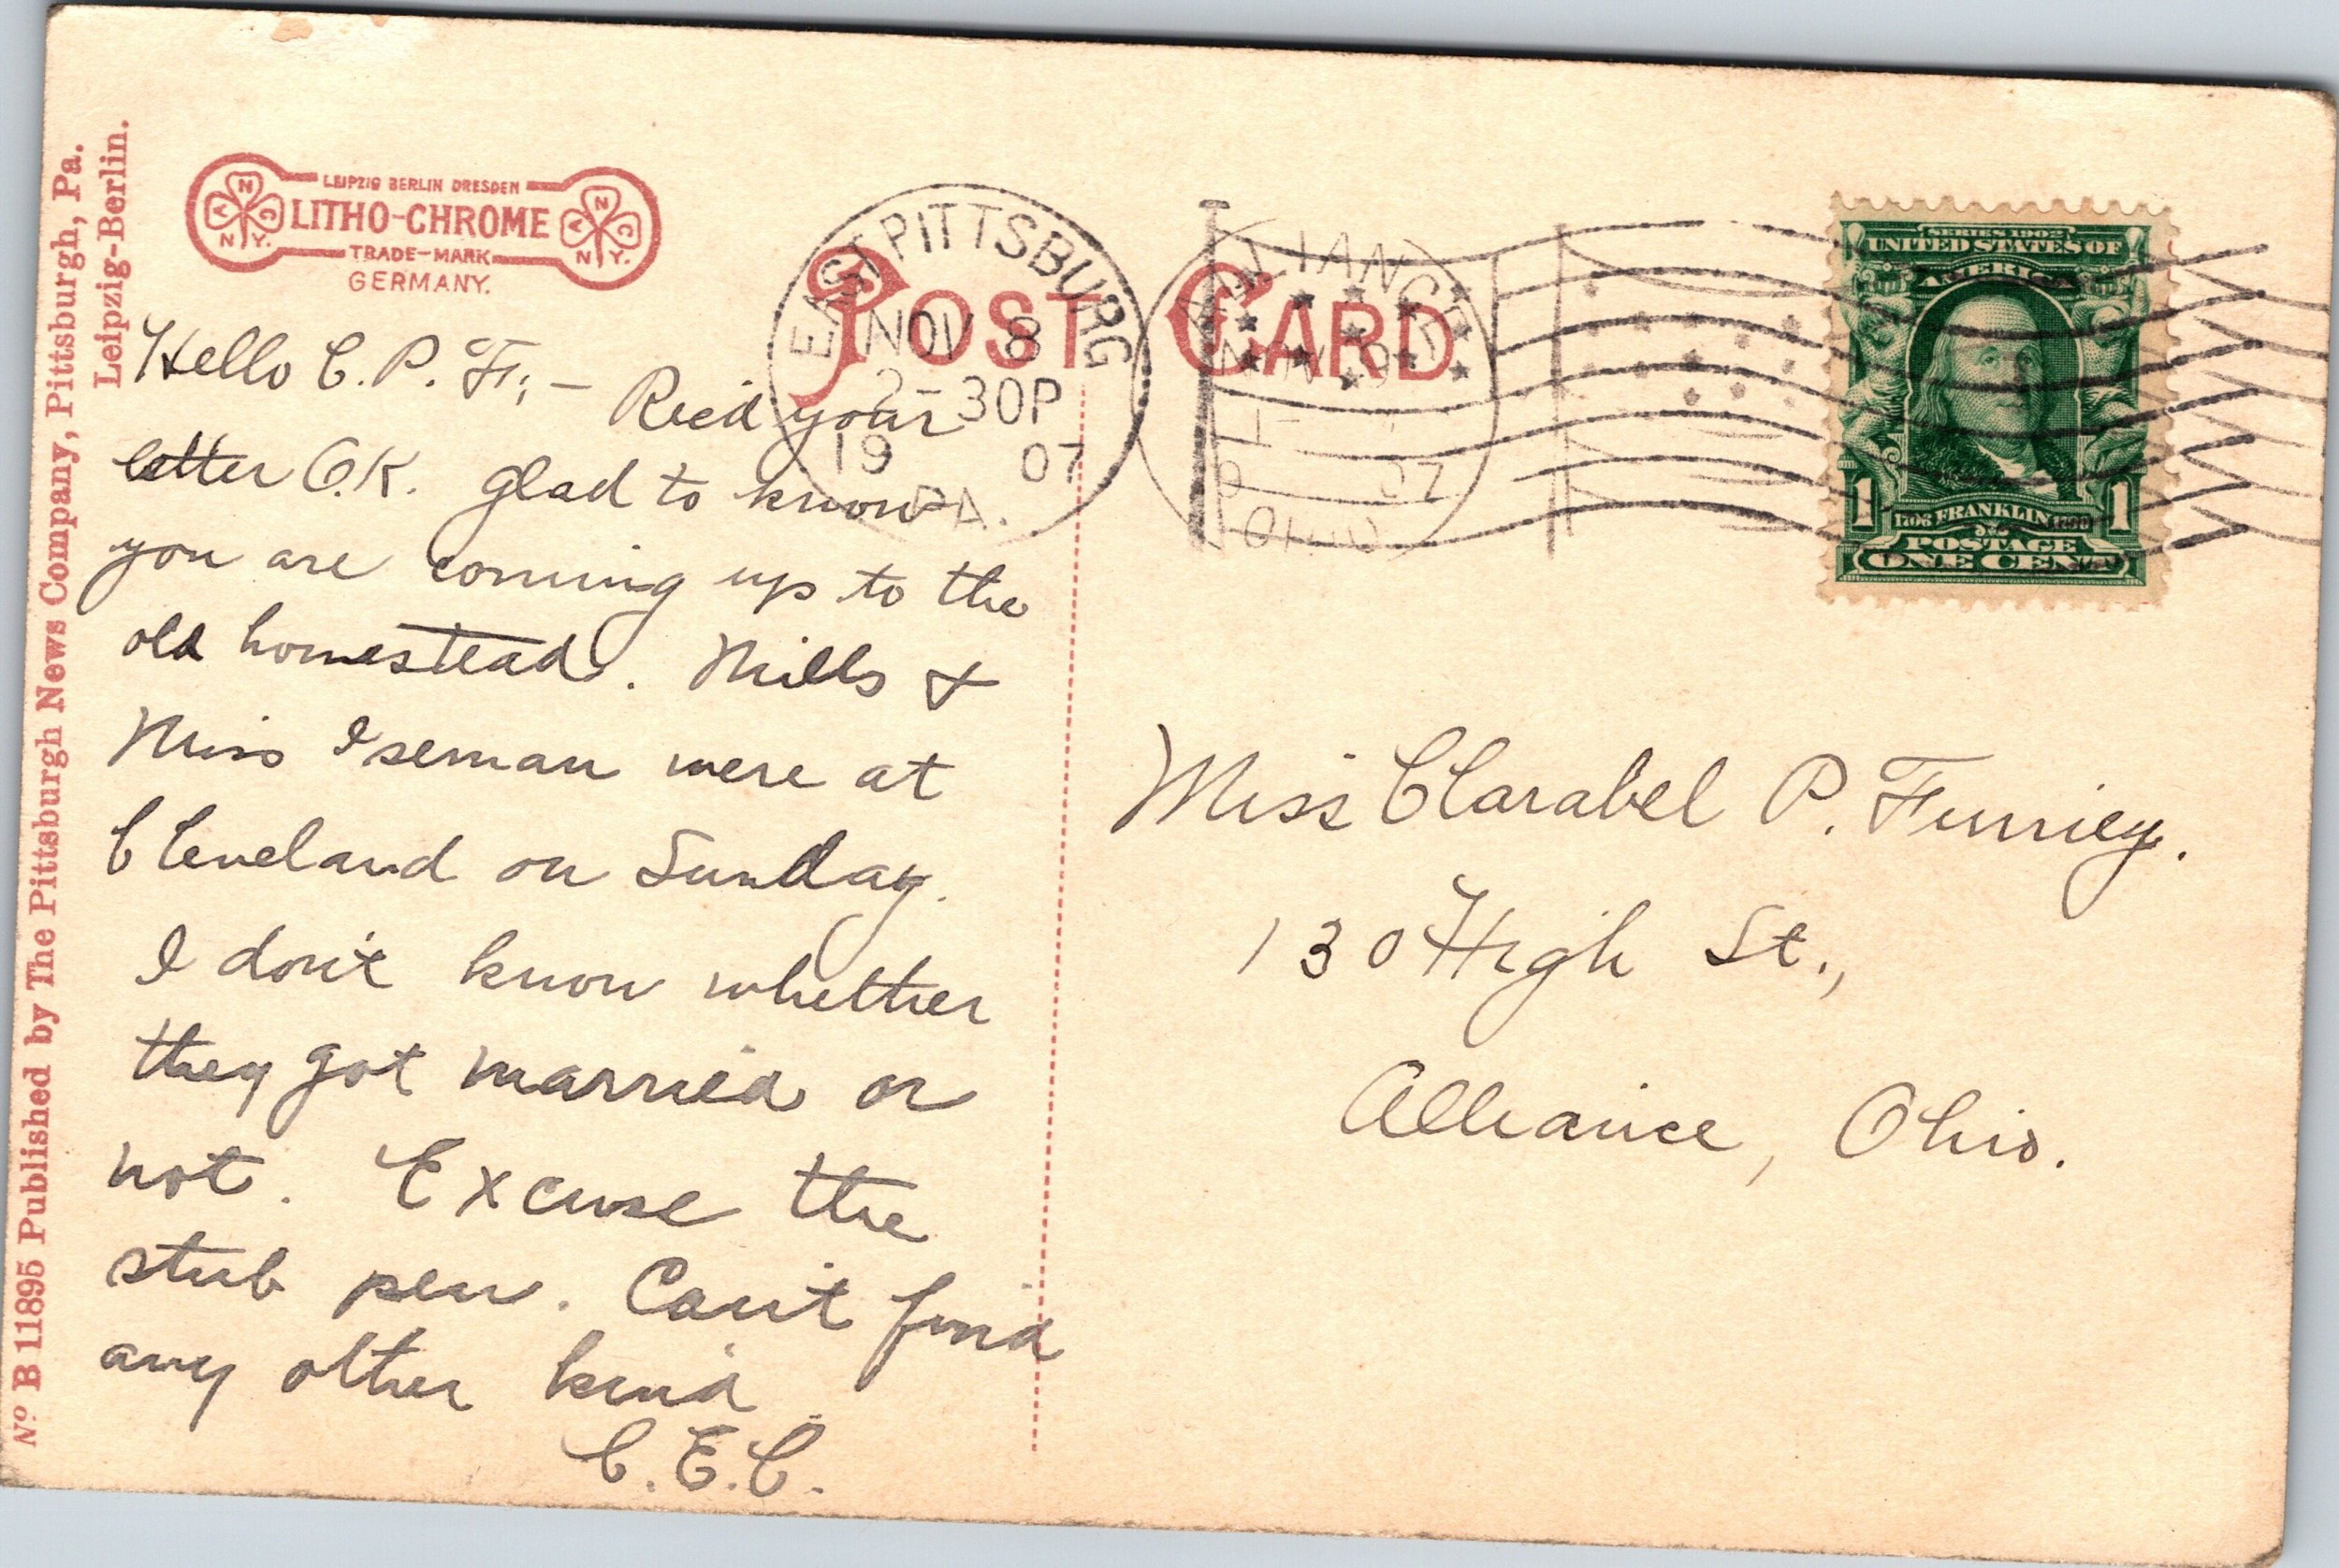 Nº B 11895 Published by The Pittsburgh News Company, Pittsburgh, Pa.
Leipzig-Berlin.
LEIPZIG BERLIN DRESDEN
LITHO-CHROME
TRADE-MARK
GERMANY.
N.Y.
N.Y.
POST CARD
EAST PITTSBURG
NOV 8
2-30P
19 07
PA.
ALLIANCE
NOV 9
07
OHIO
SERIES 1902
UNITED STATES OF
AMERICA
1 1
FRANKLIN
POSTAGE
ONE CENT
Hello C. P. F., – Rec'd your
letter O.K. glad to know
you are coming up to the
old homestead. Mills &
Miss Iseman were at
Cleveland on Sunday.
I don't know whether
they got married or
not. Excuse the
stub pen. Can't find
any other kind.
C.E.C.
Miss Clarabel P. Furriey.
130 High St.,
Alliance, Ohio.